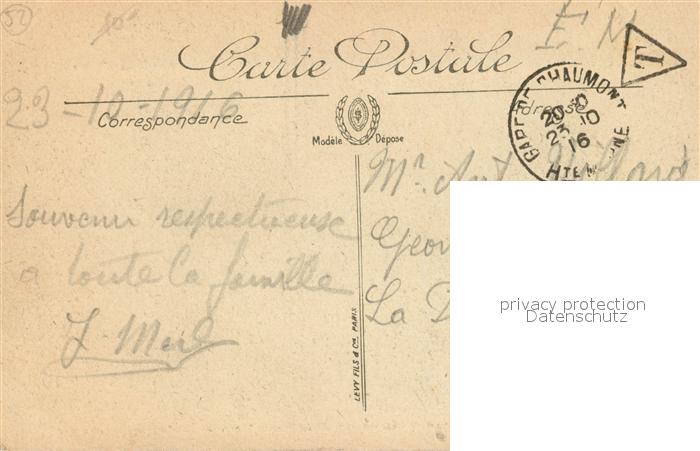 52
E. M
T
Carte Postale
23-10-1916
Correspondance
Adresse
Modèle Déposé
GARE DE CHAUMONT
20 30
23 10
16
HTE MARNE
Mr Ant
Souvenir respectueuse
a toute la famille
Geor
La D
LEVY FILS & Cie PARIS
privacy protection
Datenschutz